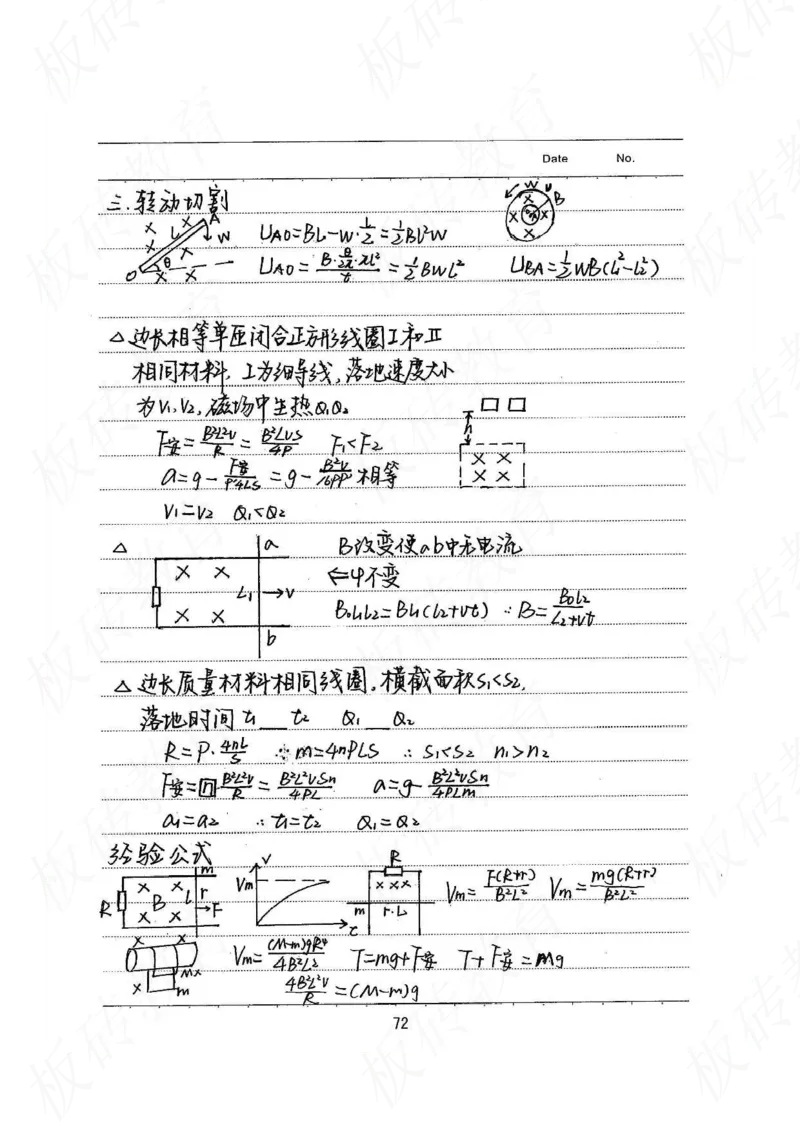 Date No.
三.转动切割
A L W O θ
U_AO=BL-W·L/2=½BL²W
W B
U_AO=(B·θ/2π·πL²)/t=½BWL² U_BA=½WB(L₁²-L₂²)
△边长相等单匝闭合正方形线圈Ⅰ和Ⅱ
相同材料,Ⅰ为细导线,落地速度大小
为V₁,V₂,磁场中生热Q₁Q₂
h
F安=B²L²V/R=B²LVS/4ρ F₁<F₂
a=g-F安/ρ'4LS=g-B²V/16ρρ'相等
V₁=V₂ Q₁<Q₂
△ a B改变使ab中无电流
L₁ →V ⇐φ不变
B₀L₁L₂=BL₁(L₂+vt) ∴B=B₀L₂/(L₂+vt)
b
△边长质量材料相同线圈,横截面积S₁<S₂,
落地时间t₁__t₂ Q₁__Q₂
R=ρ·4nL/S ∵m=4nρLS ∴S₁<S₂ n₁>n₂
F安=n B²L²V/R=B²L²VSn/4ρL a=g-B²L²VSn/4ρLm
a₁=a₂ ∴t₁=t₂ Q₁=Q₂
经验公式
R B L m r →F
V Vm t
R m r.L
Vm=F(R+r)/B²L² Vm=mg(R+r)/B²L²
M m
Vm=(M-m)gR/4B²L² T=mg+F安 T+F安=Mg
4B²L²V/R=(M-m)g
72
板砖教育